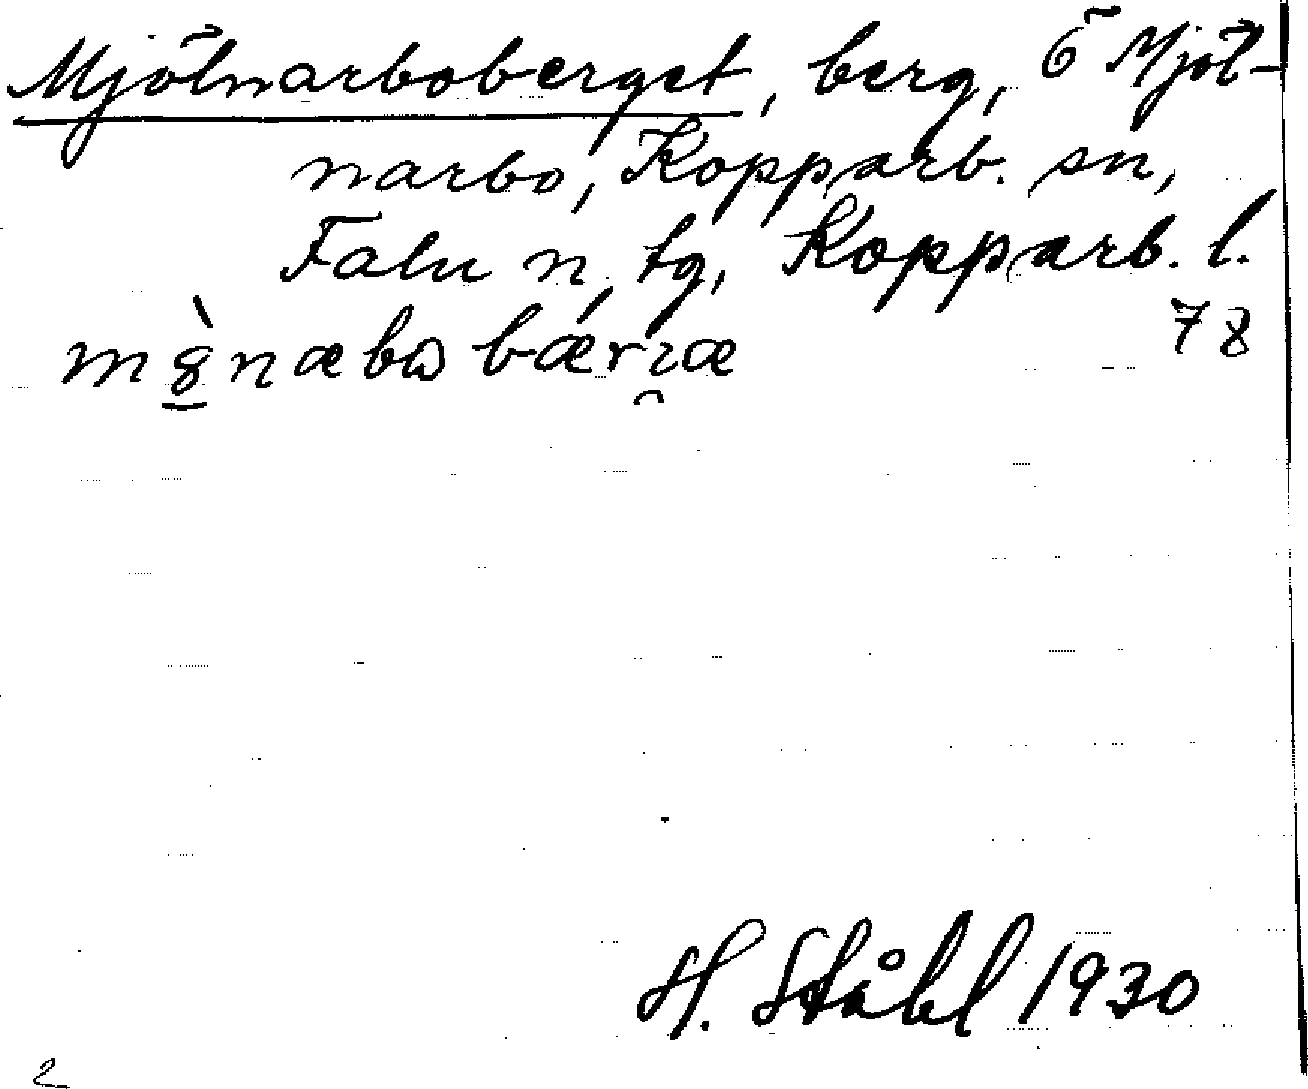 Mjölnarboberget, berg, Ö Mjöl-
narbo, Kopparb. sn,
Falu n. tg, Kopparb. l.
78
H. Ståhl 1930
2